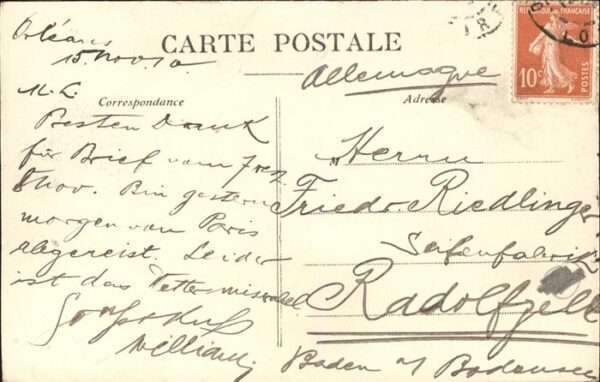 Orléans
15. Nov. 10
CARTE POSTALE
RÉPUBLIQUE FRANÇAISE
10c
POSTES
Allemagne
M. L.
Correspondance
Besten Dank
für Brief vom 7 resp.
8 Nov. Bin gestern
morgen von Paris
abgereist. Leider
ist das Wetter miserabel
William
Adresse
Herrn
Friedr. Riedlinger
Seifenfabrik
Radolfzell
Baden a/ Bodensee